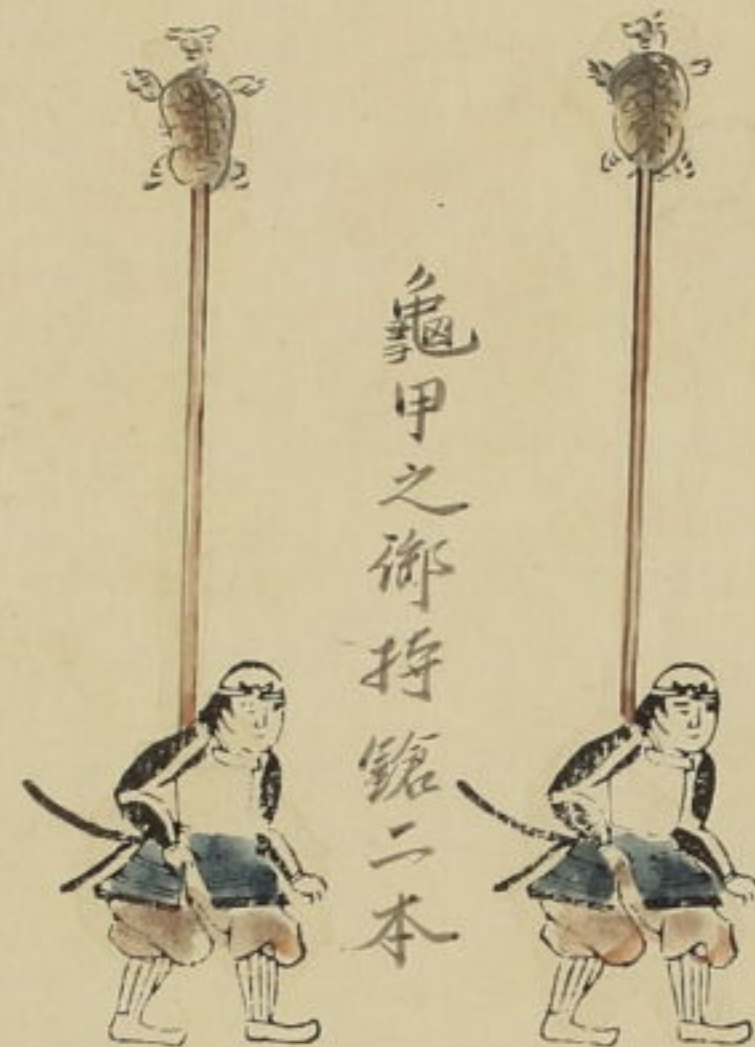 龜甲之御持鎗二本